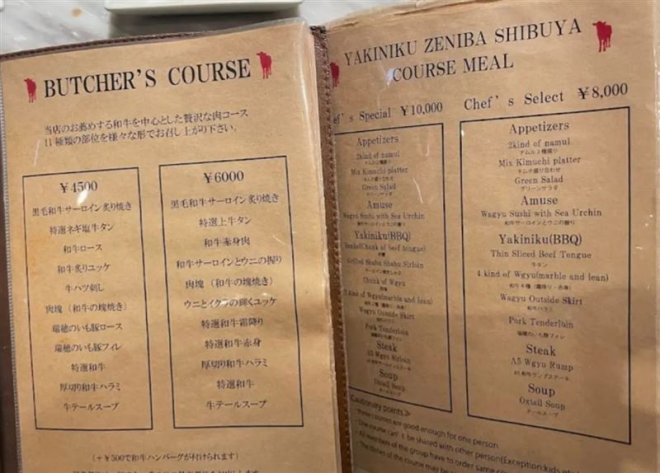 BUTCHER'S COURSE
当店のお薦めする和牛を中心とした贅沢な肉コース
11種類の部位を様々な形でお召し上がり下さい。
￥4500
黒毛和牛サーロイン炙り焼き
特選ネギ塩牛タン
和牛ロース
和牛炙りユッケ
牛ハツ刺し
肉塊（和牛の塊焼き）
瑞穂のいも豚ロース
瑞穂のいも豚フィレ
特選和牛
厚切り和牛ハラミ
牛テールスープ
￥6000
黒毛和牛サーロイン炙り焼き
特選上牛タン
和牛赤身肉
和牛サーロインとウニの握り
肉塊（和牛の塊焼き）
ウニとイクラの輝くユッケ
特選和牛霜降り
特選和牛赤身
厚切り和牛ハラミ
特選和牛
牛テールスープ
(＋￥500で和牛ハンバーグが付けられます)
YAKINIKU ZENIBA SHIBUYA
COURSE MEAL
Special ￥10,000
Appetizers
2kind of namul
Mix Kimuchi platter
Green Salad
Amuse
Wagyu Sushi with Sea Urchin
Yakiniku(BBQ)
of beef tongue)
Shabu Sirloin
Chunk of Wgyu
Wgyu(marble and lean)
Wagyu Outside Skirt
Pork Tenderloin
Steak
A5 Wgyu Sirloin
Soup
Oxtail Soup
Chef's Select ￥8,000
Appetizers
2kind of namul
ナムル2種盛り
Mix Kimuchi platter
キムチ盛り合わせ
Green Salad
グリーンサラダ
Amuse
Wagyu Sushi with Sea Urchin
和牛サーロインとウニの握り
Yakiniku(BBQ)
Thin Sliced Beef Tongue
牛タン
4 kind of Wgyu(marble and lean)
Wagyu Outside Skirt
和牛ハラミ
Pork Tenderloin
Steak
A5 Wgyu Rump
Soup
Oxtail Soup
テールスープ
Cautionary points
courses are good enough for one person.
be shared with other person(Exception:kids
All members of the group have to order
of the course may